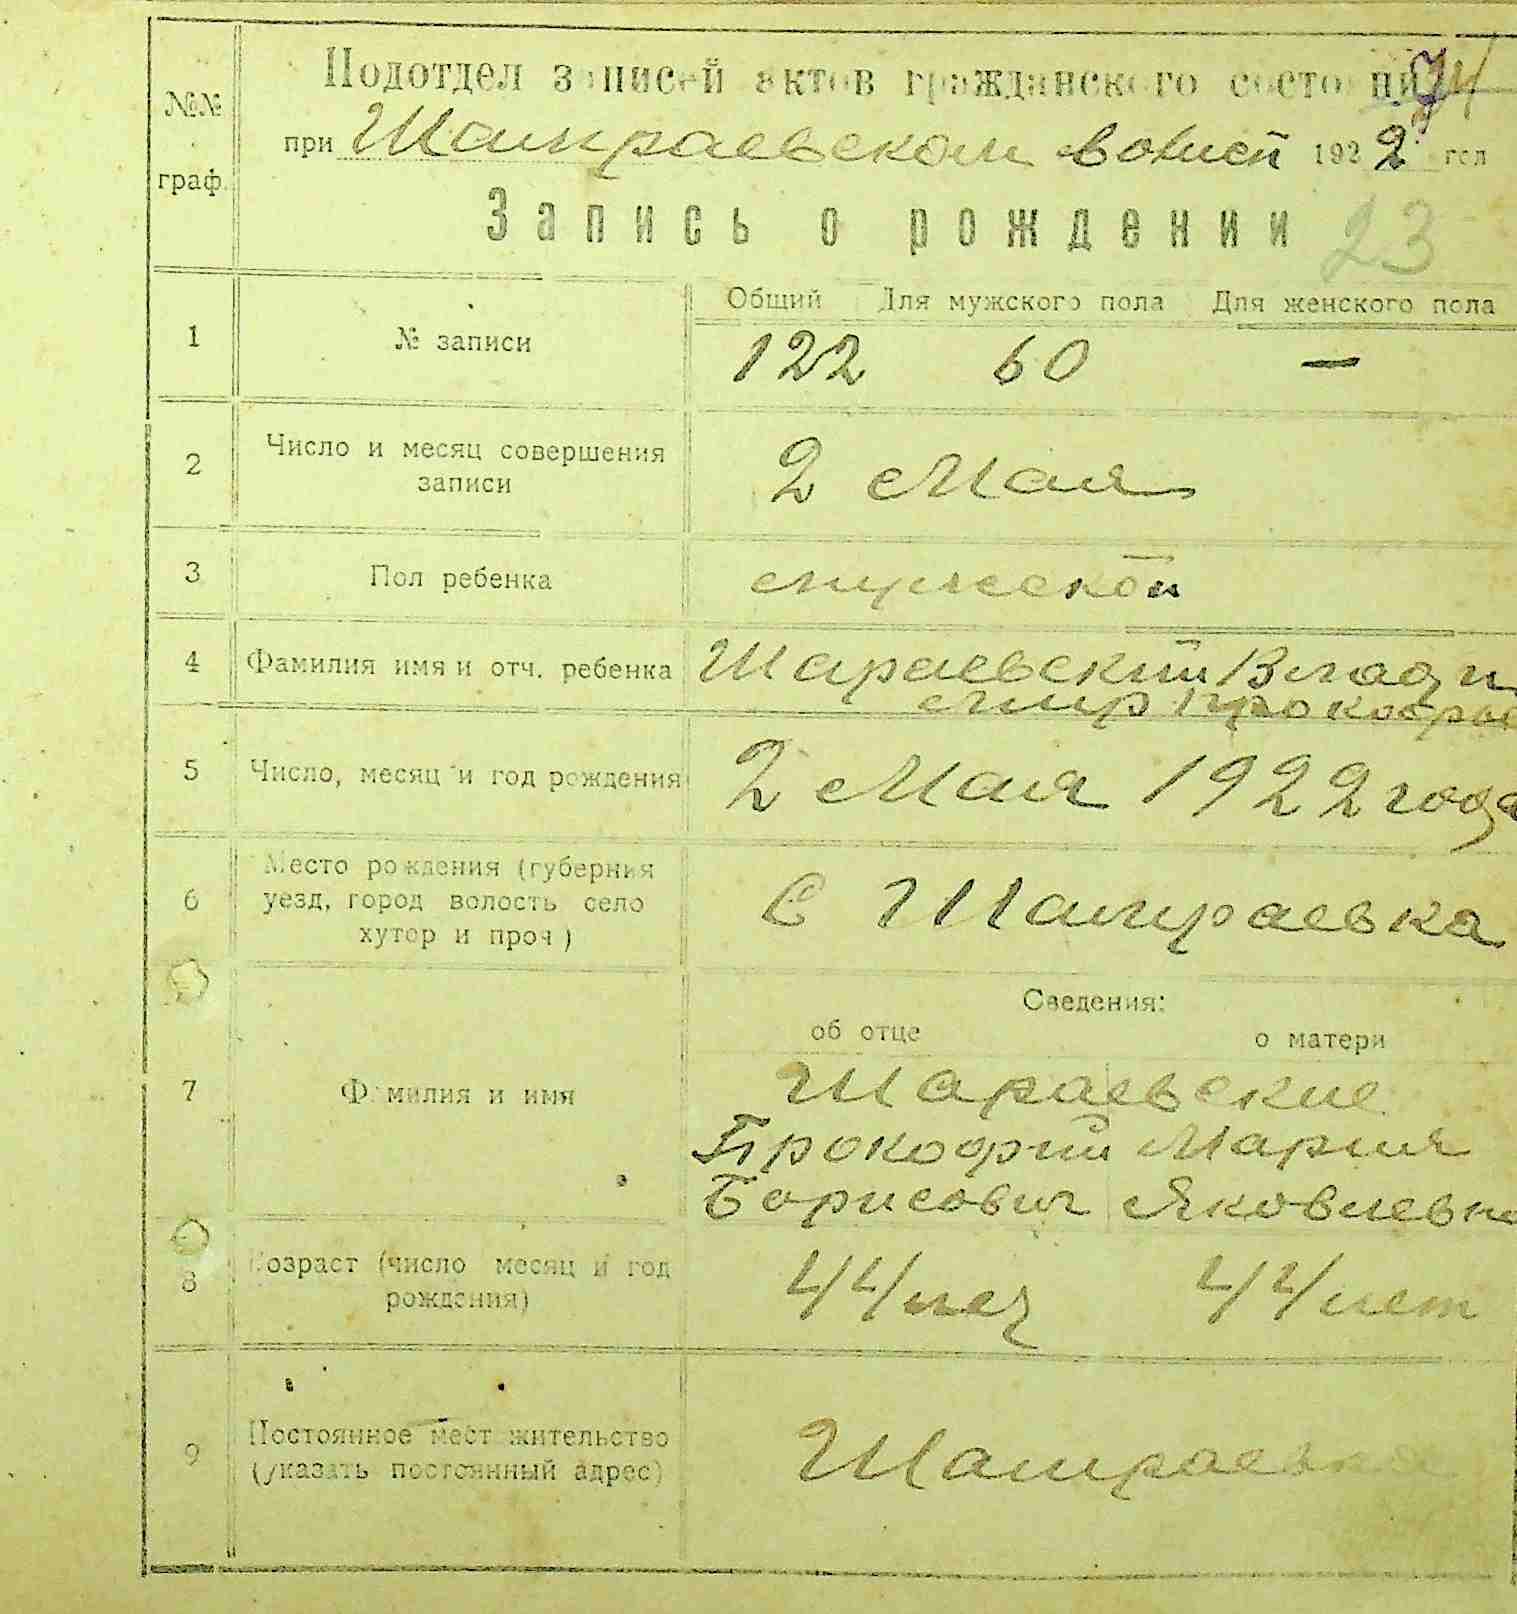 №№ граф.
Подотдел записей актов гражданского состояния
при Шамраевском волисп 1922 год
Запись о рождении
23
Общий Для мужского пола Для женского пола
1 № записи 122 60 —
2 Число и месяц совершения
записи
2 Мая
3 Пол ребенка мужской
4 Фамилия имя и отч. ребенка Шараевский Влади
мир Прокофье
5 Число, месяц и год рождения 2 Мая 1922 года
6 Место рождения (губерния
уезд, город волость село
хутор и проч)
С Шамраевка
Сведения:
об отце о матери
7 Фамилия и имя
Шараевские
Прокофий Мария
Борисович Яковлевна
8 Возраст (число месяц и год
рождения)
44/лет 44/лет
9 Постоянное мест жительство
(указать постоянный адрес)
Шамраевка